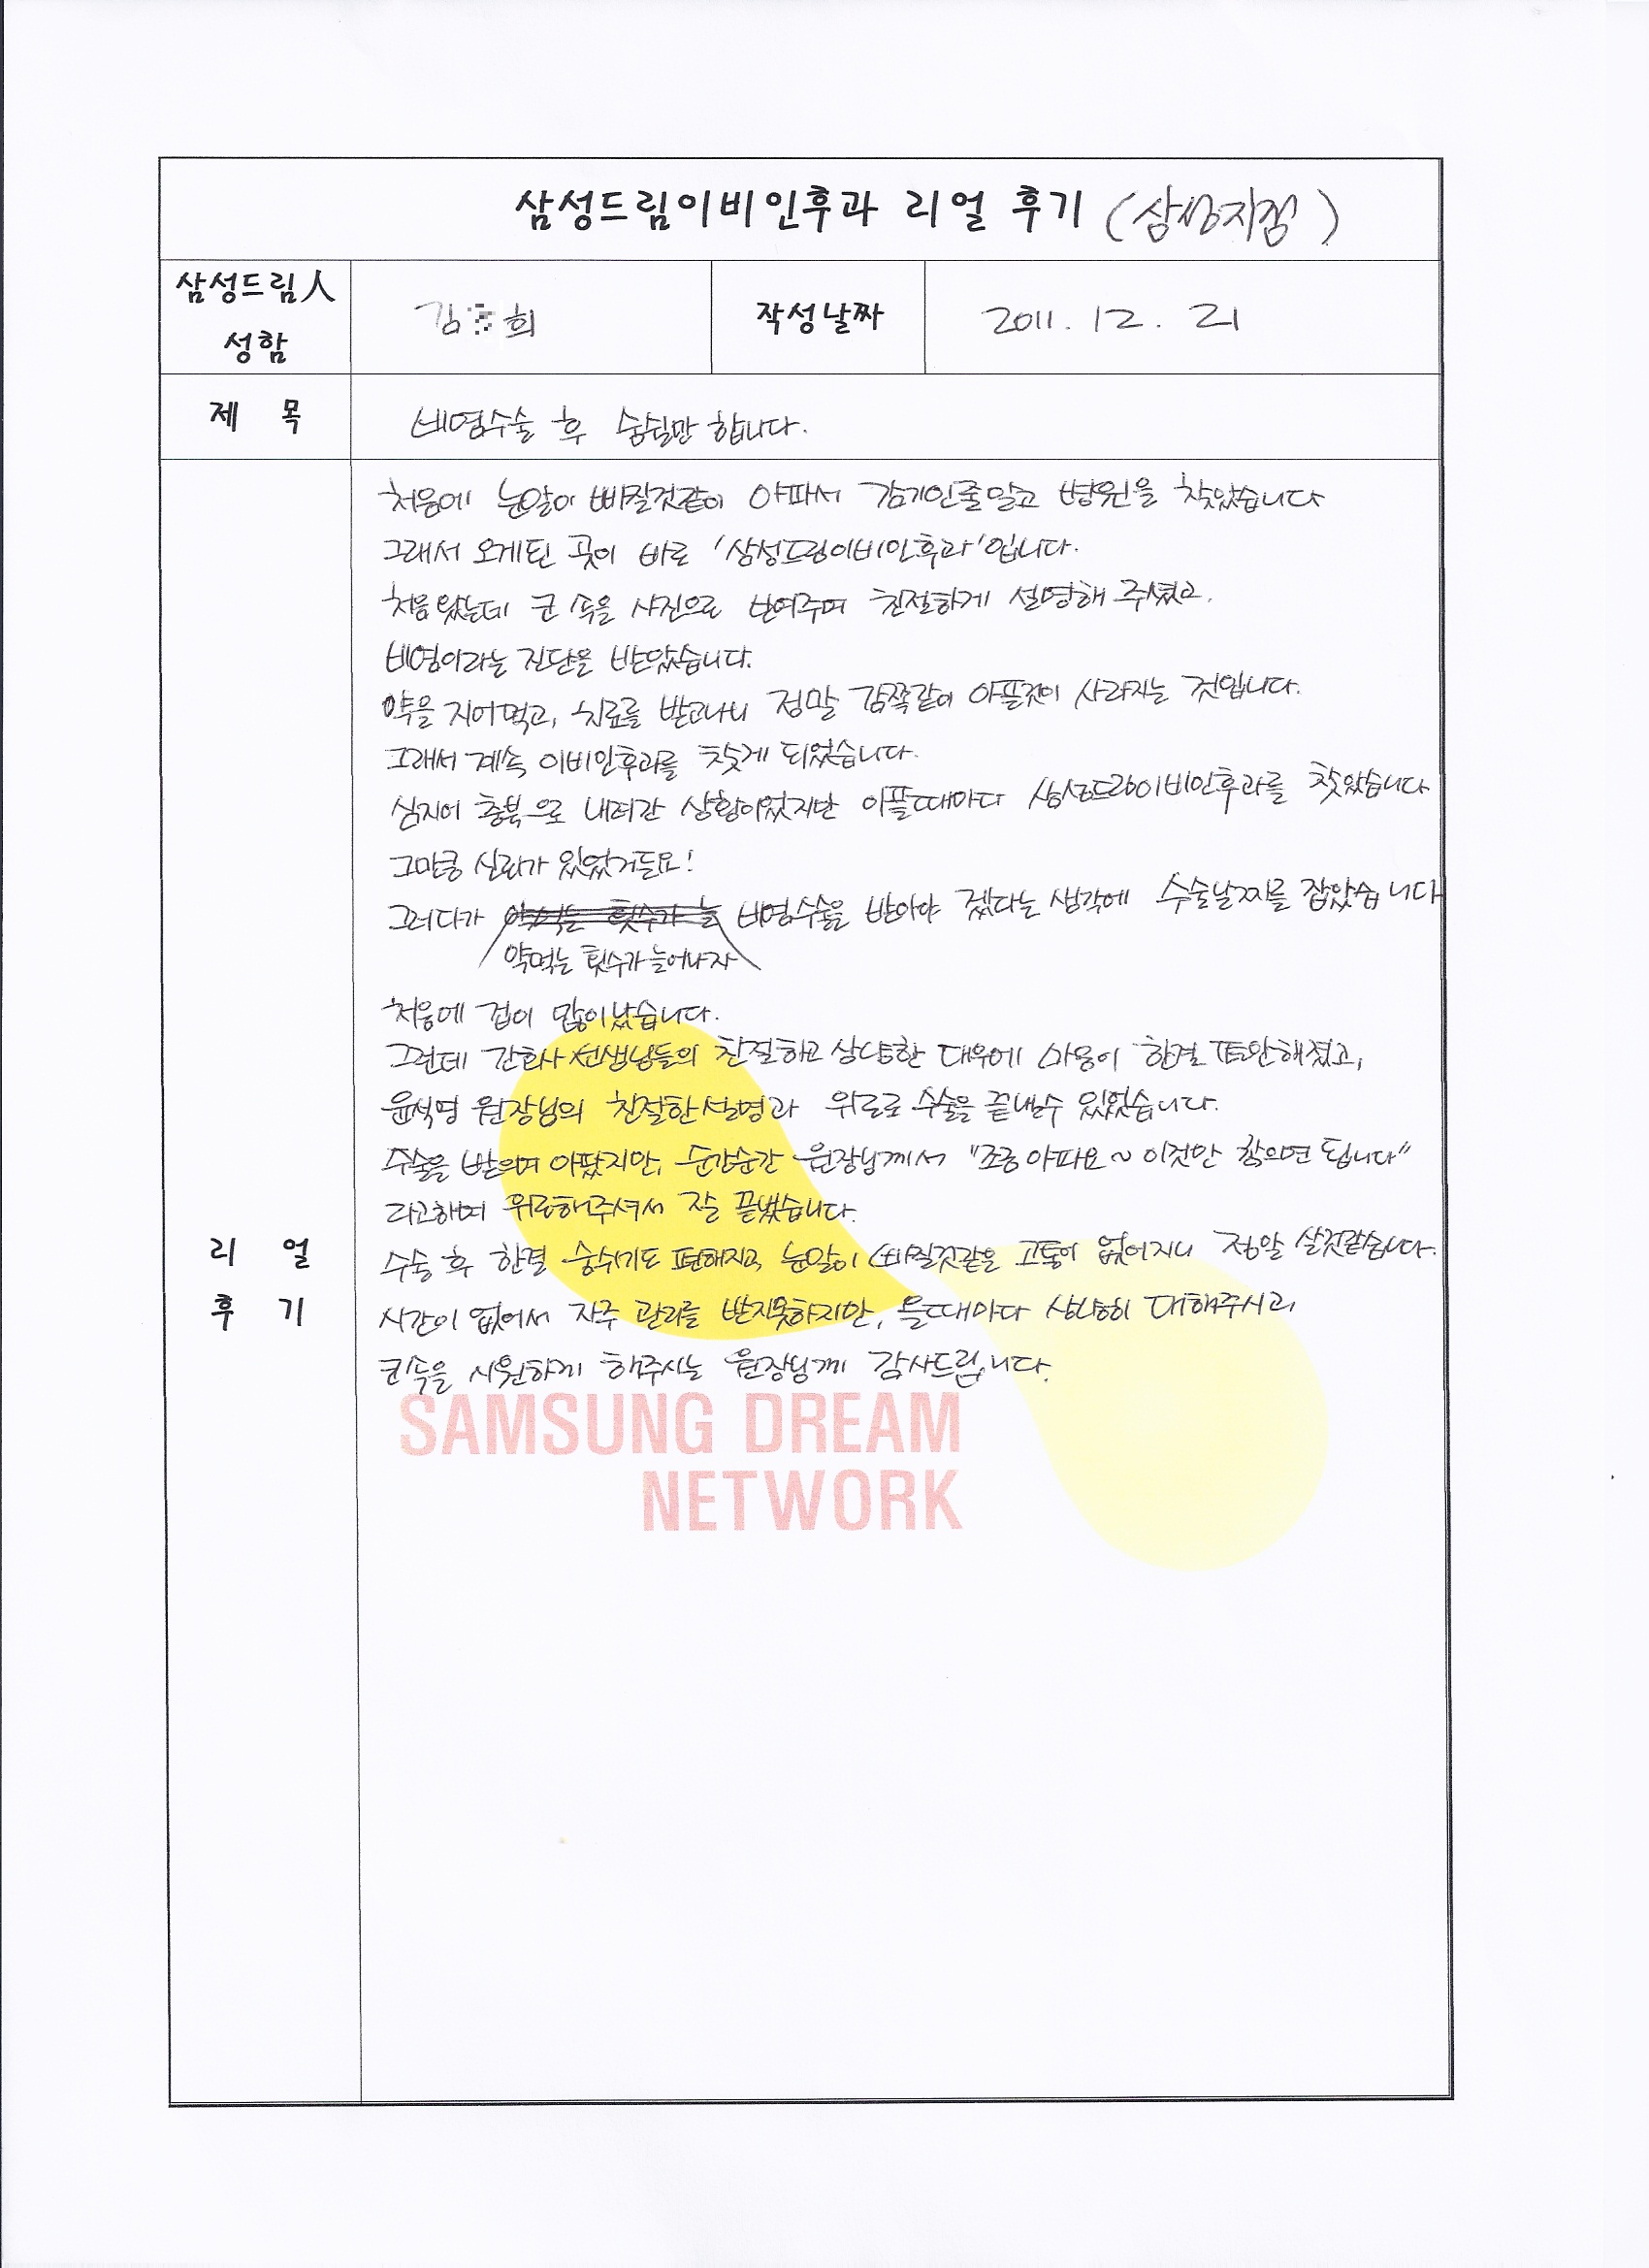 삼성드림이비인후과 리얼 후기 (삼성지점)
삼성드림人
성함
김 희
작성날짜
2011. 12. 21
제 목
비염수술 후 숨쉴만 합니다.
처음에 눈알이 빠질것같이 아파서 감기인줄알고 병원을 찾았습니다
그래서 오게된 곳이 바로 '삼성드림이비인후과'입니다.
처음 왔는데 코 속을 사진으로 보여주며 친절하게 설명해 주셨고.
비염이라는 진단을 받았습니다.
약을 지어먹고, 치료를 받고나니 정말 감쪽같이 아픈것이 사라지는 것입니다.
그래서 계속 이비인후과를 찾게 되었습니다.
심지어 충북으로 내려간 상황이었지만 아플때마다 삼성드림이비인후과를 찾았습니다
그만큼 신뢰가 있었거든요!
그러다가 약먹는 횟수가 늘 비염수술을 받아야 겠다는 생각에 수술날짜를 잡았습니다
약먹는 횟수가 늘어나자
처음에 겁이 많이났습니다.
그런데 간호사 선생님들의 친절하고 상냥한 대우에 마음이 한결 편안해졌고,
윤식명 원장님의 친절한설명과 위로로 수술을 끝낼수 있었습니다.
수술을 받으며 아팠지만, 순간순간 원장님께서 "조금 아파요~ 이것만 참으면 됩니다"
라고하며 위로해주셔서 잘 끝냈습니다.
수술 후 한결 숨쉬기도 편해지고, 눈알이 빠질것같은 고통이 없어지니 정말 살것같습니다.
시간이 없어서 자주 관리를 받지못하지만, 올때마다 상냥히 대해주시고,
코속을 시원하게 해주시는 원장님께 감사드립니다.
리 얼
후 기
SAMSUNG DREAM
NETWORK